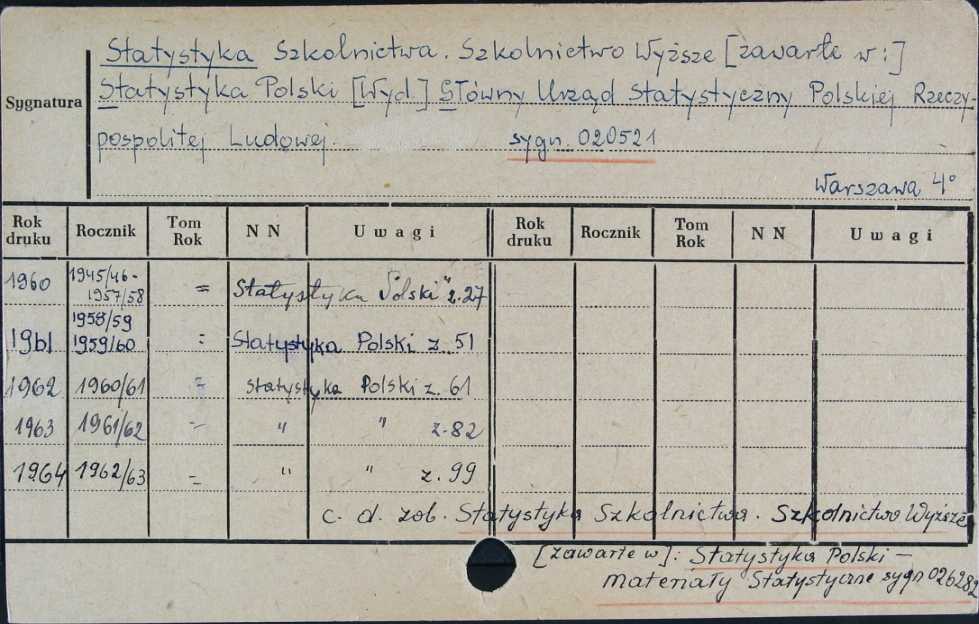 Statystyka Szkolnictwa. Szkolnictwo Wyższe [zawarte w:]
Sygnatura
Statystyka Polski [Wyd.] Główny Urząd Statystyczny Polskiej Rzeczy-
pospolitej Ludowej. sygn. 020521
Warszawa 4°
Rok druku Rocznik Tom Rok NN Uwagi Rok druku Rocznik Tom Rok NN Uwagi
1960 1945/46-1957/58 = Statystyka Polski" z. 27
1961 1958/59 1959/60 = Statystyka Polski z. 51
1962 1960/61 = Statystyka Polski z. 61
1963 1961/62 = " " z. 82
1964 1962/63 = " " z. 99
c. d. zob. Statystyka Szkolnictwa. Szkolnictwo Wyższe
[zawarte w]: Statystyka Polski –
Materiały Statystyczne sygn 026282